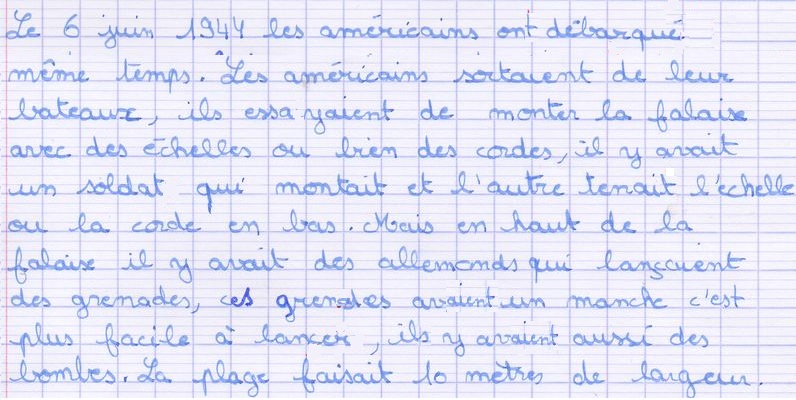 Le 6 juin 1944 les américains ont débarqué
même temps. Les américains sortaient de leur
bateaux, ils essayaient de monter la falaise
avec des échelles ou bien des cordes, il y avait
un soldat qui montait et l'autre tenait l'échelle
ou la corde en bas. Mais en haut de la
falaise il y avait des allemends qui lançaient
des grenades, ces grenades avaient un manche c'est
plus facile à lancer, ils y avaient aussi des
bombes. La plage faisait 10 mètres de largeur.